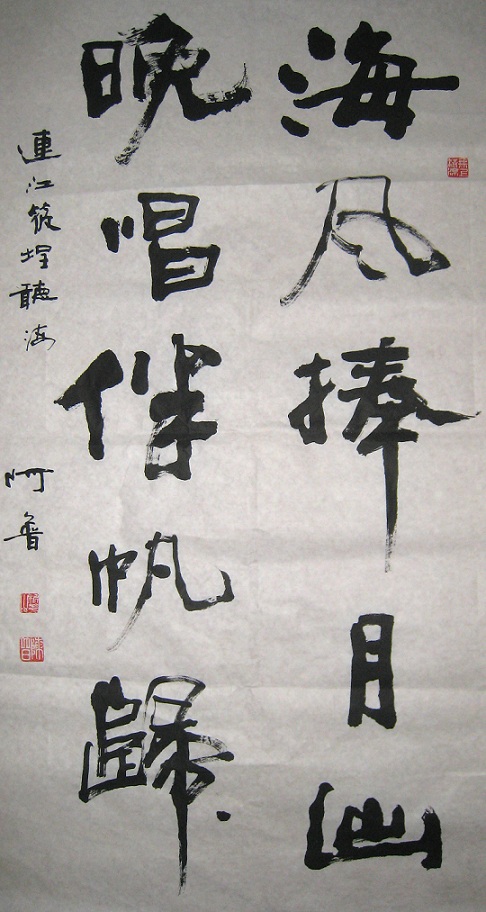 海风捧月出
晚唱伴帆歸
連江筱埕聽海
阿魯